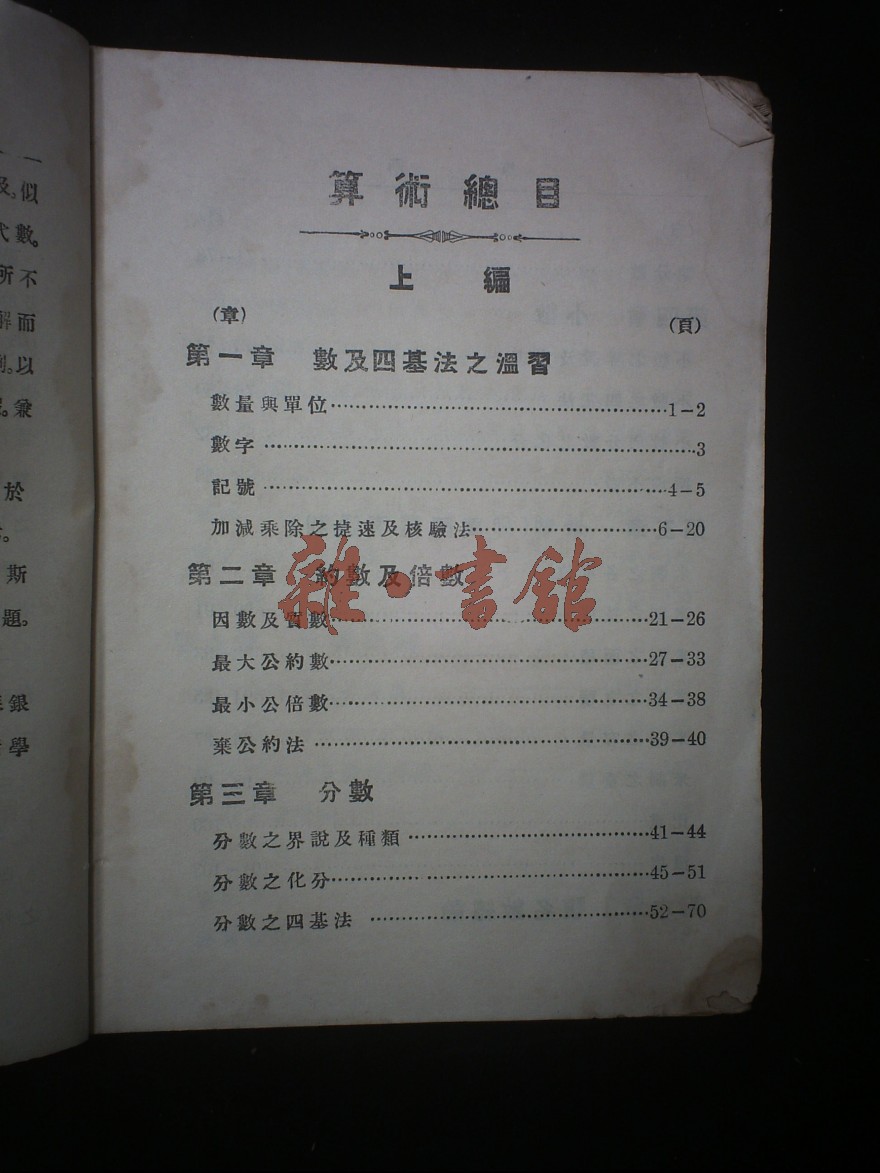 算術總目
上編
(章)
(頁)
第一章 數及四基法之溫習
數量與單位……1-2
數字……3
記號……4-5
加減乘除之捷速及核驗法……6-20
第二章 約數及倍數
因數及質數……21-26
最大公約數……27-33
最小公倍數……34-38
棄公約法……39-40
第三章 分數
分數之界說及種類……41-44
分數之化分……45-51
分數之四基法……52-70
雜·書館
似
數。
所不
解而
以
兼
於
斯
題。
銀
學